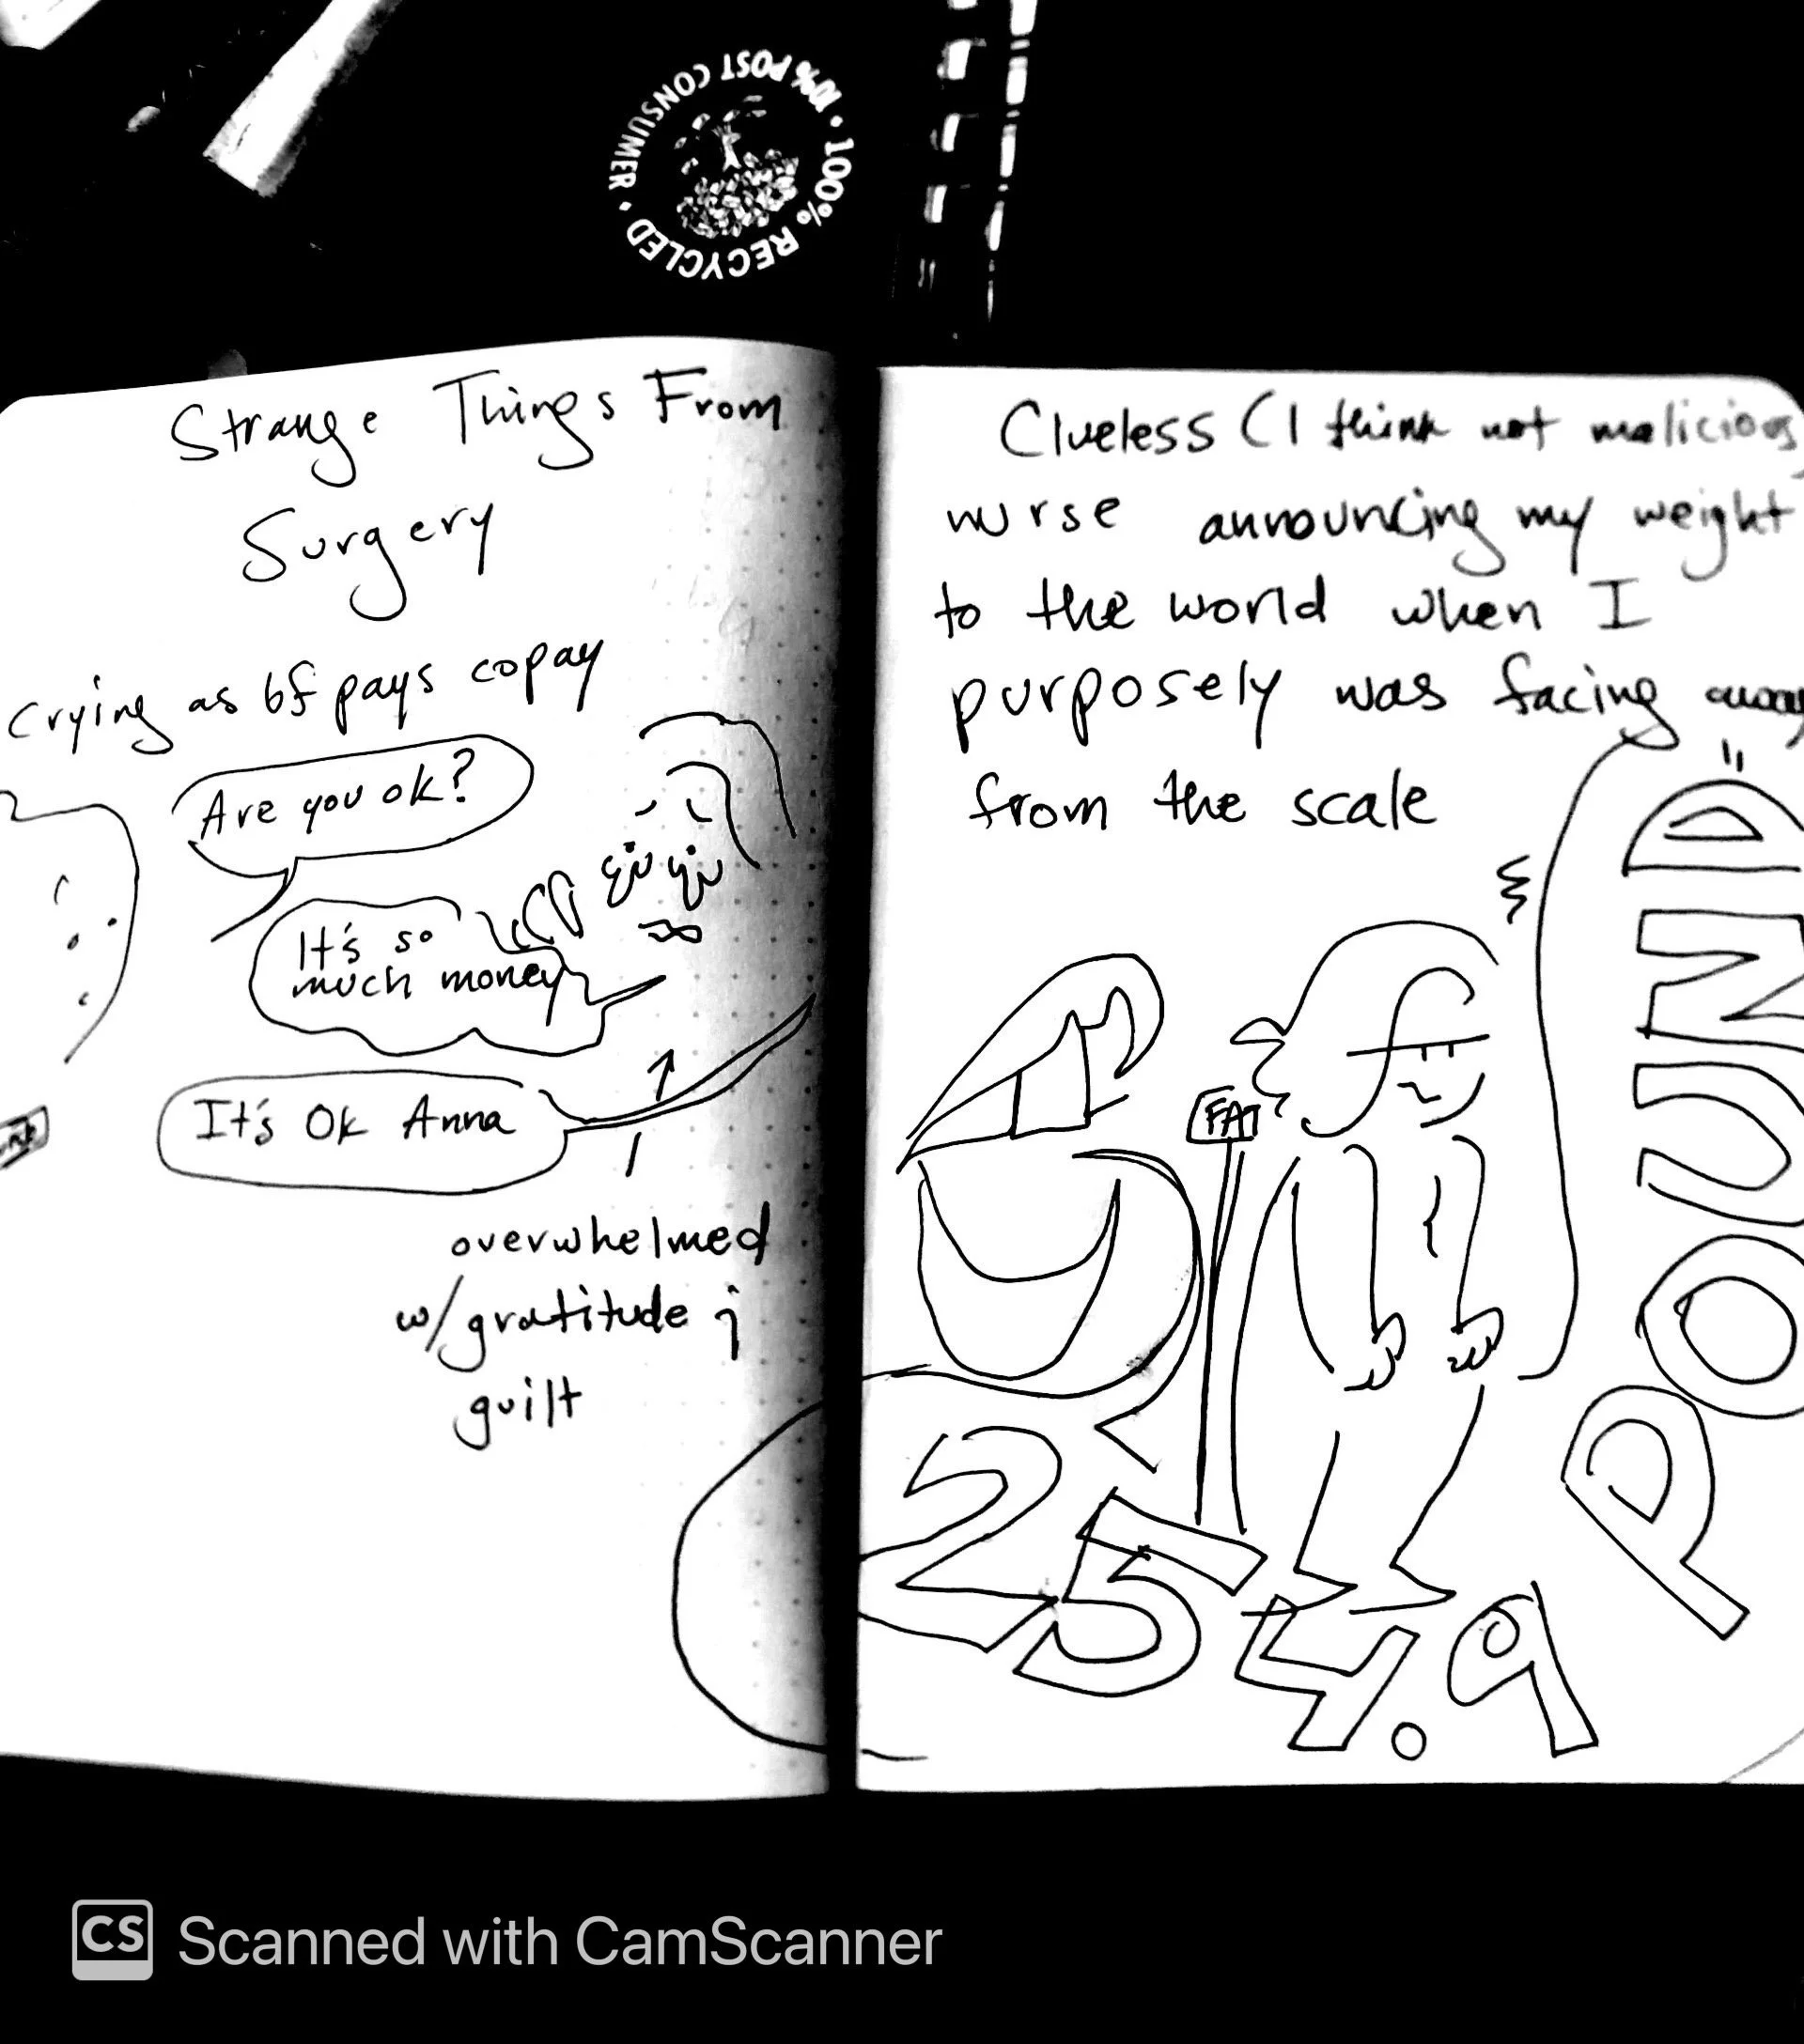 10% POST CONSUMER • 100% RECYCLED •
Strange Things From
Surgery
crying as bf pays copay
Are you ok?
It's so
much money
It's Ok Anna
overwhelmed
w/gratitude &
guilt
Clueless (I think not malicious)
nurse announcing my weight
to the world when I
purposely was facing away
from the scale
FAT
254.9
POUND
CS Scanned with CamScanner